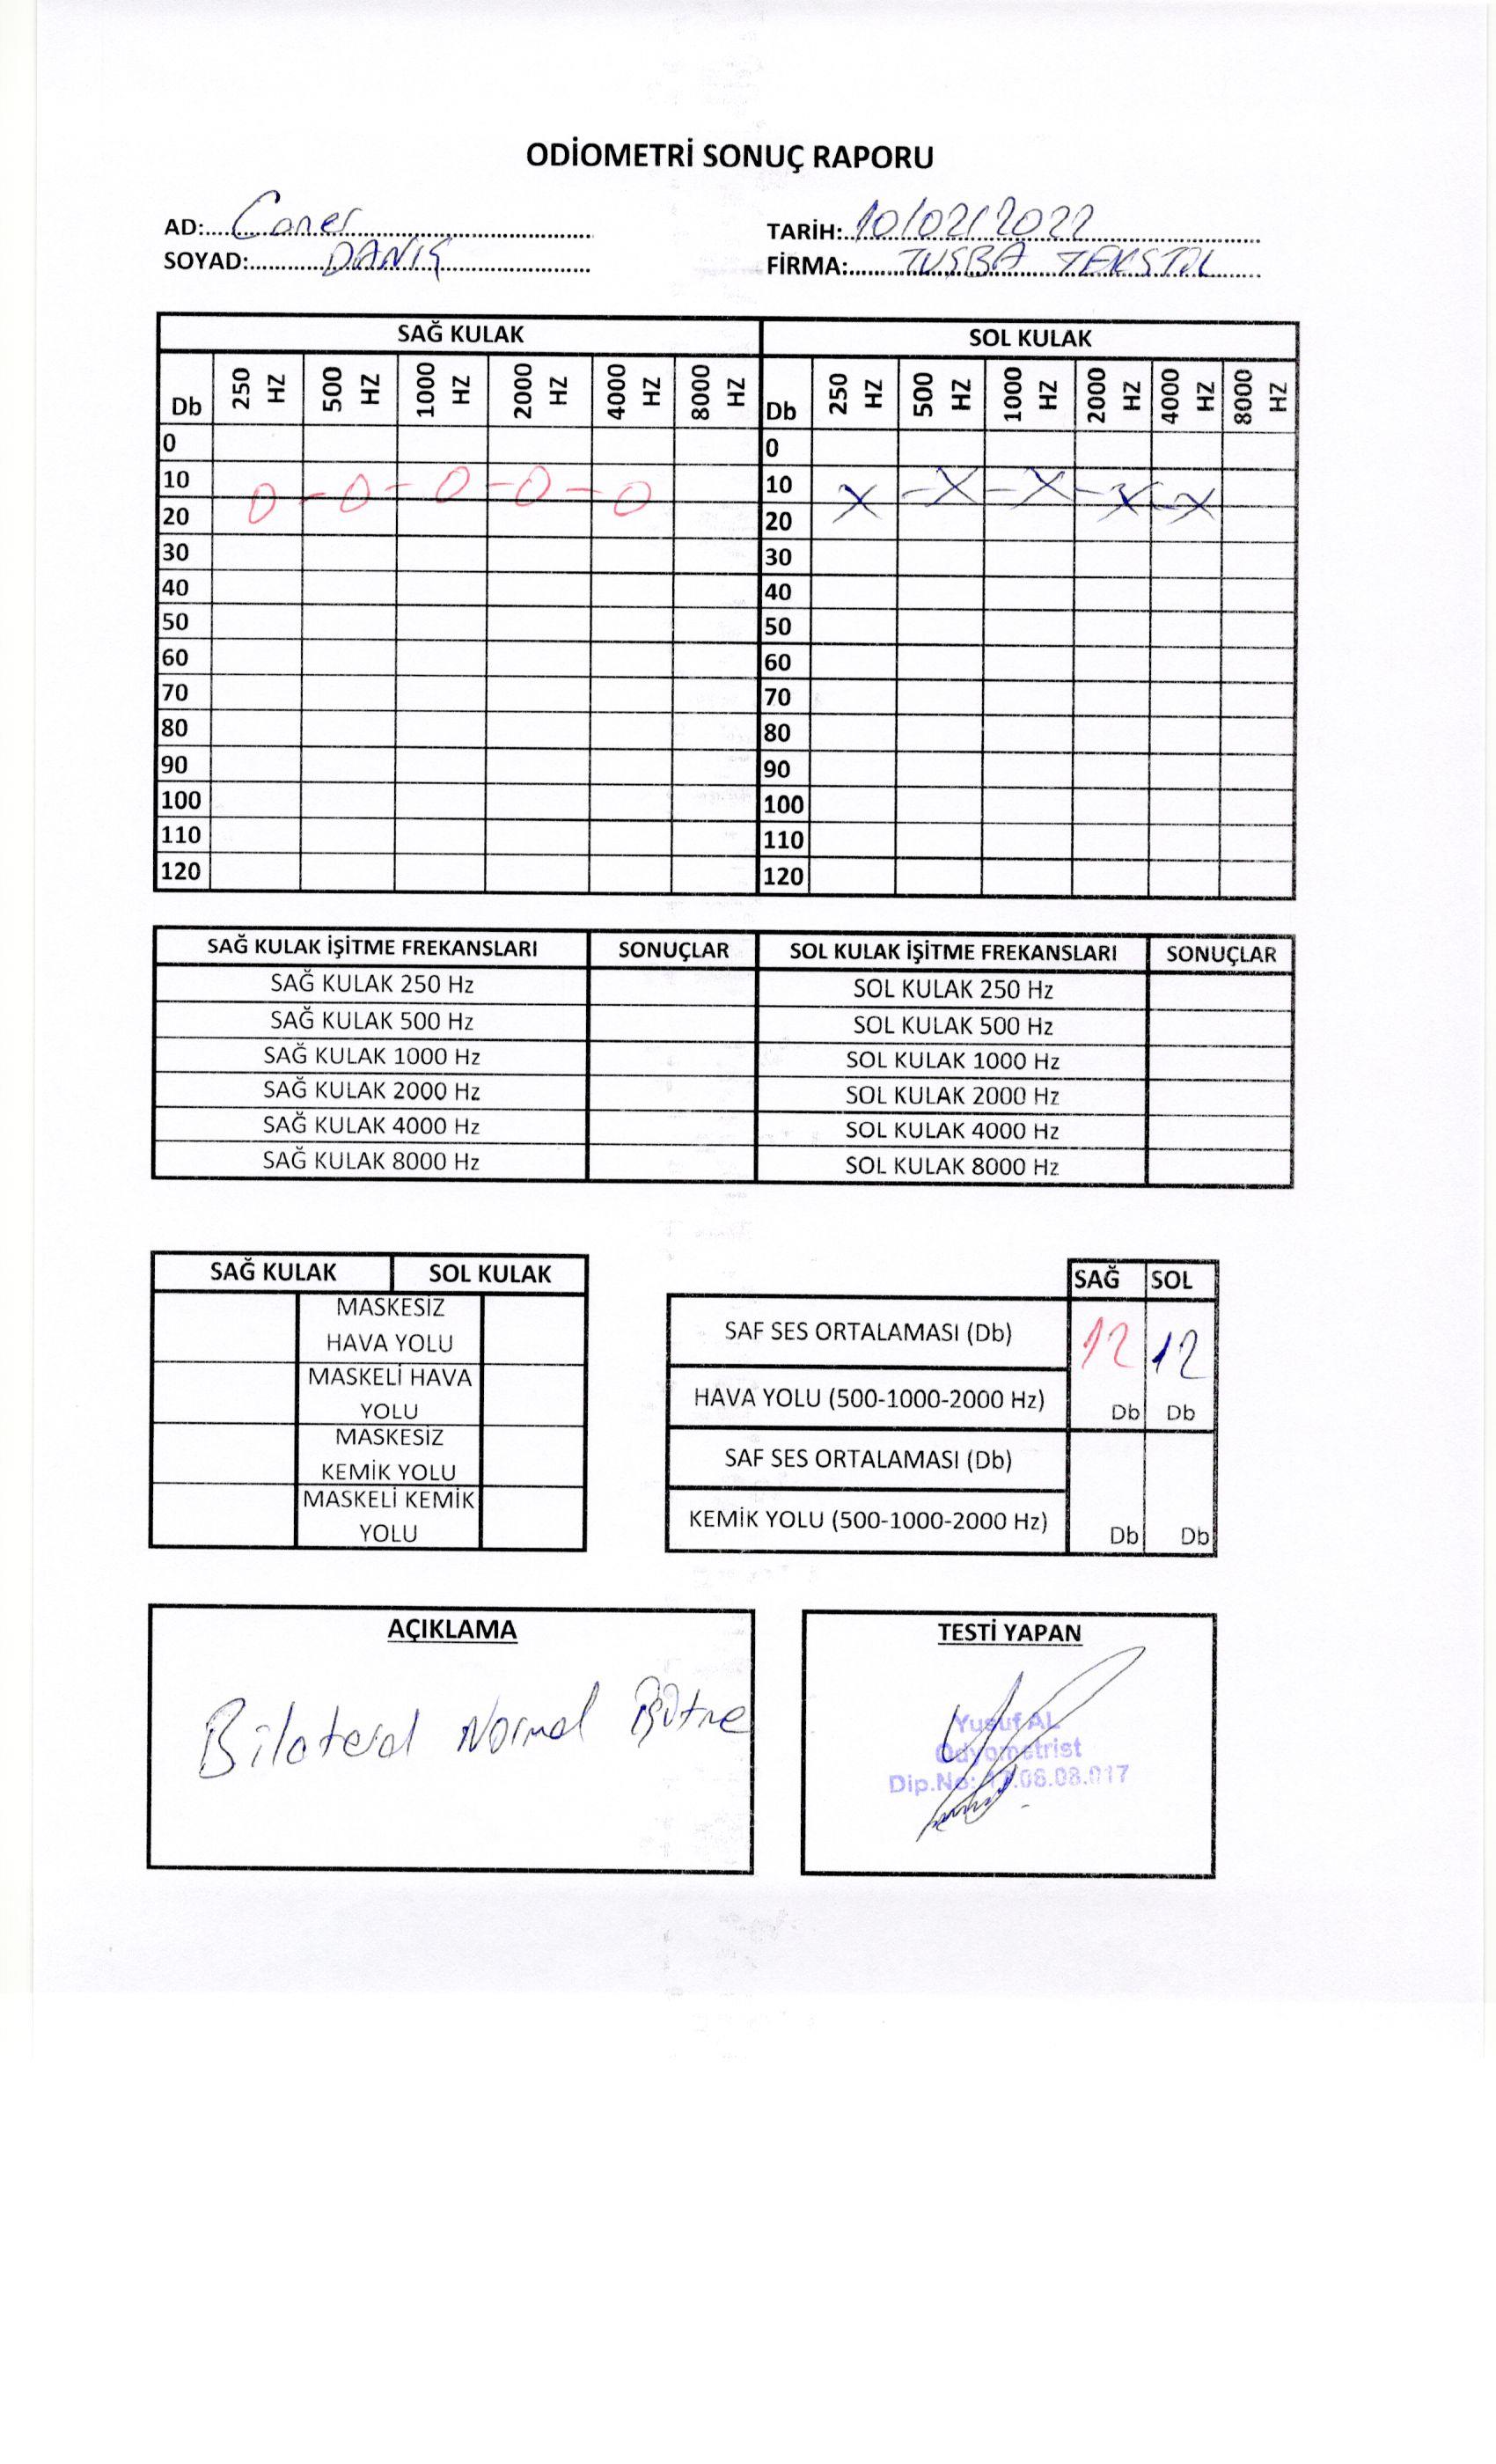 ODİOMETRİ SONUÇ RAPORU
AD: Caner TARİH: 10/02/2022
SOYAD: DANIŞ FİRMA: TUŞBA TEKSTİL
SAĞ KULAK SOL KULAK
Db 250 HZ 500 HZ 1000 HZ 2000 HZ 4000 HZ 8000 HZ Db 250 HZ 500 HZ 1000 HZ 2000 HZ 4000 HZ 8000 HZ
0 0
10 10
20 20
30 30
40 40
50 50
60 60
70 70
80 80
90 90
100 100
110 110
120 120
SAĞ KULAK İŞİTME FREKANSLARI SONUÇLAR SOL KULAK İŞİTME FREKANSLARI SONUÇLAR
SAĞ KULAK 250 Hz SOL KULAK 250 Hz
SAĞ KULAK 500 Hz SOL KULAK 500 Hz
SAĞ KULAK 1000 Hz SOL KULAK 1000 Hz
SAĞ KULAK 2000 Hz SOL KULAK 2000 Hz
SAĞ KULAK 4000 Hz SOL KULAK 4000 Hz
SAĞ KULAK 8000 Hz SOL KULAK 8000 Hz
SAĞ KULAK SOL KULAK
MASKESİZ
HAVA YOLU
MASKELİ HAVA
YOLU
MASKESİZ
KEMİK YOLU
MASKELİ KEMİK
YOLU
SAĞ SOL
SAF SES ORTALAMASI (Db) 12 12
HAVA YOLU (500-1000-2000 Hz) Db Db
SAF SES ORTALAMASI (Db)
KEMİK YOLU (500-1000-2000 Hz) Db Db
AÇIKLAMA
Bilateral Normal İşitme
TESTİ YAPAN
Yusuf AL
Odyometrist
Dip.No: